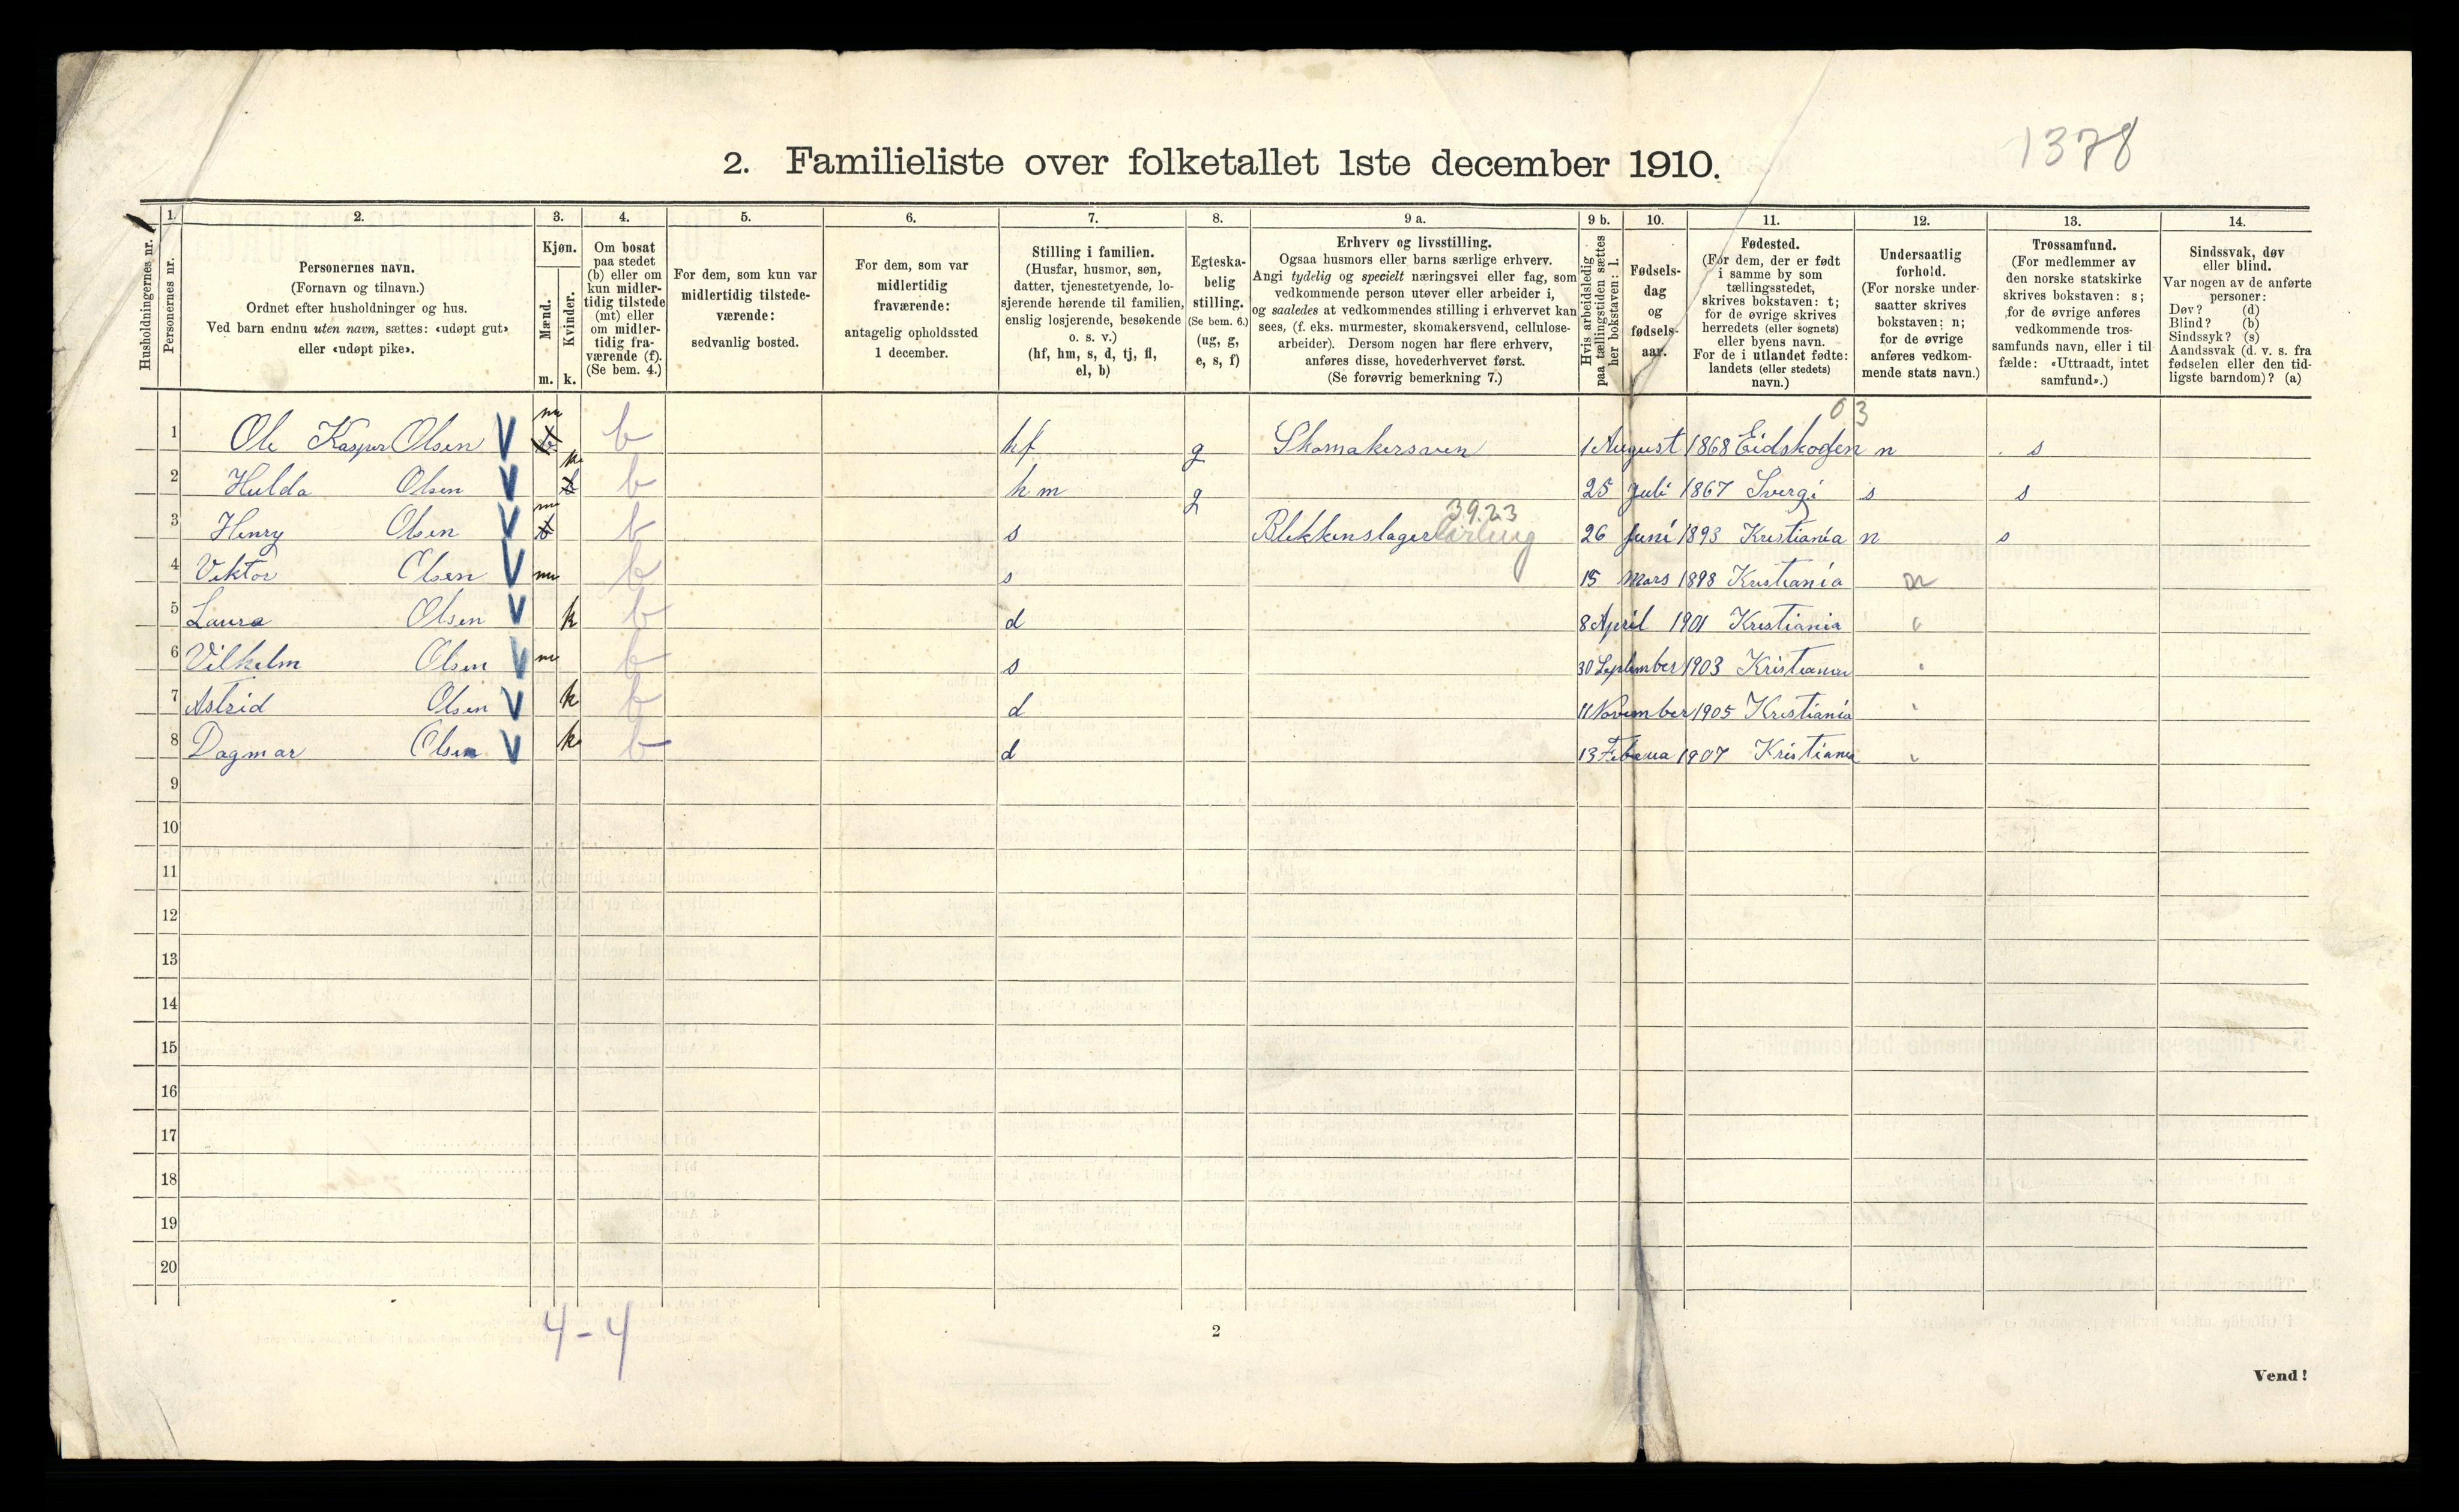 1378
2. Familieliste over folketallet 1ste december 1910.
Husholdningernes nr.
1.
Personernes nr.
2.
Personernes navn.
(Fornavn og tilnavn.)
Ordnet efter husholdninger og hus.
Ved barn endnu uten navn, sættes: «udøpt gut»
eller «udøpt pike».
3.
Kjøn.
Mænd.
Kvinder.
m. k.
4.
Om bosat
paa stedet
(b) eller om
kun midler-
tidig tilstede
(mt) eller
om midler-
tidig fra-
værende (f).
(Se bem. 4.)
5.
For dem, som kun var
midlertidig tilstede-
værende:
sedvanlig bosted.
6.
For dem, som var
midlertidig
fraværende:
antagelig opholdssted
1 december.
7.
Stilling i familien.
(Husfar, husmor, søn,
datter, tjenestetyende, lo-
sjerende hørende til familien,
enslig losjerende, besøkende
o. s. v.)
(hf, hm, s, d, tj, fl,
el, b)
8.
Egteska-
belig
stilling.
(Se bem. 6.)
(ug, g,
e, s, f)
9 a.
Erhverv og livsstilling.
Ogsaa husmors eller barns særlige erhverv.
Angi tydelig og specielt næringsvei eller fag, som
vedkommende person utøver eller arbeider i,
og saaledes at vedkommendes stilling i erhvervet kan
sees, (f. eks. murmester, skomakersvend, cellulose-
arbeider). Dersom nogen har flere erhverv,
anføres disse, hovederhvervet først.
(Se forøvrig bemerkning 7.)
9 b.
Hvis arbeidsledig
paa tællingstiden sættes
her bokstaven: l.
10.
Fødsels-
dag
og
fødsels-
aar.
11.
Fødested.
(For dem, der er født
i samme by som
tællingsstedet,
skrives bokstaven: t;
for de øvrige skrives
herredets (eller sognets)
eller byens navn.
For de i utlandet fødte:
landets (eller stedets)
navn.)
12.
Undersaatlig
forhold.
(For norske under-
saatter skrives
bokstaven: n;
for de øvrige
anføres vedkom-
mende stats navn.)
13.
Trossamfund.
(For medlemmer av
den norske statskirke
skrives bokstaven: s;
for de øvrige anføres
vedkommende tros-
samfunds navn, eller i til-
fælde: «Uttraadt, intet
samfund».)
14.
Sindssvak, døv
eller blind.
Var nogen av de anførte
personer:
Døv? (d)
Blind? (b)
Sindssyk? (s)
Aandssvak (d. v. s. fra
fødselen eller den tid-
ligste barndom)? (a)
03
1 Ole Kasper Olsen V m b hf g Skomakersven 1 August 1868 Eidskogen n s
2 Hulda Olsen V k b hm g 25 juli 1867 Sverge s s
39.23
3 Henry Olsen V m b s Blikkenslager lærling 26 juni 1893 Kristiania n s
4 Viktor Olsen V m b s 15 mars 1898 Kristiania n
5 Laura Olsen V k b d 8 April 1901 Kristiania "
6 Vilhelm Olsen V m b s 30 September 1903 Kristiania "
7 Astrid Olsen V k b d 11 November 1905 Kristiania "
8 Dagmar Olsen V k b d 13 Februa 1907 Kristiania "
9
10
11
12
13
14
15
16
17
18
19
20
4-4
2
Vend!